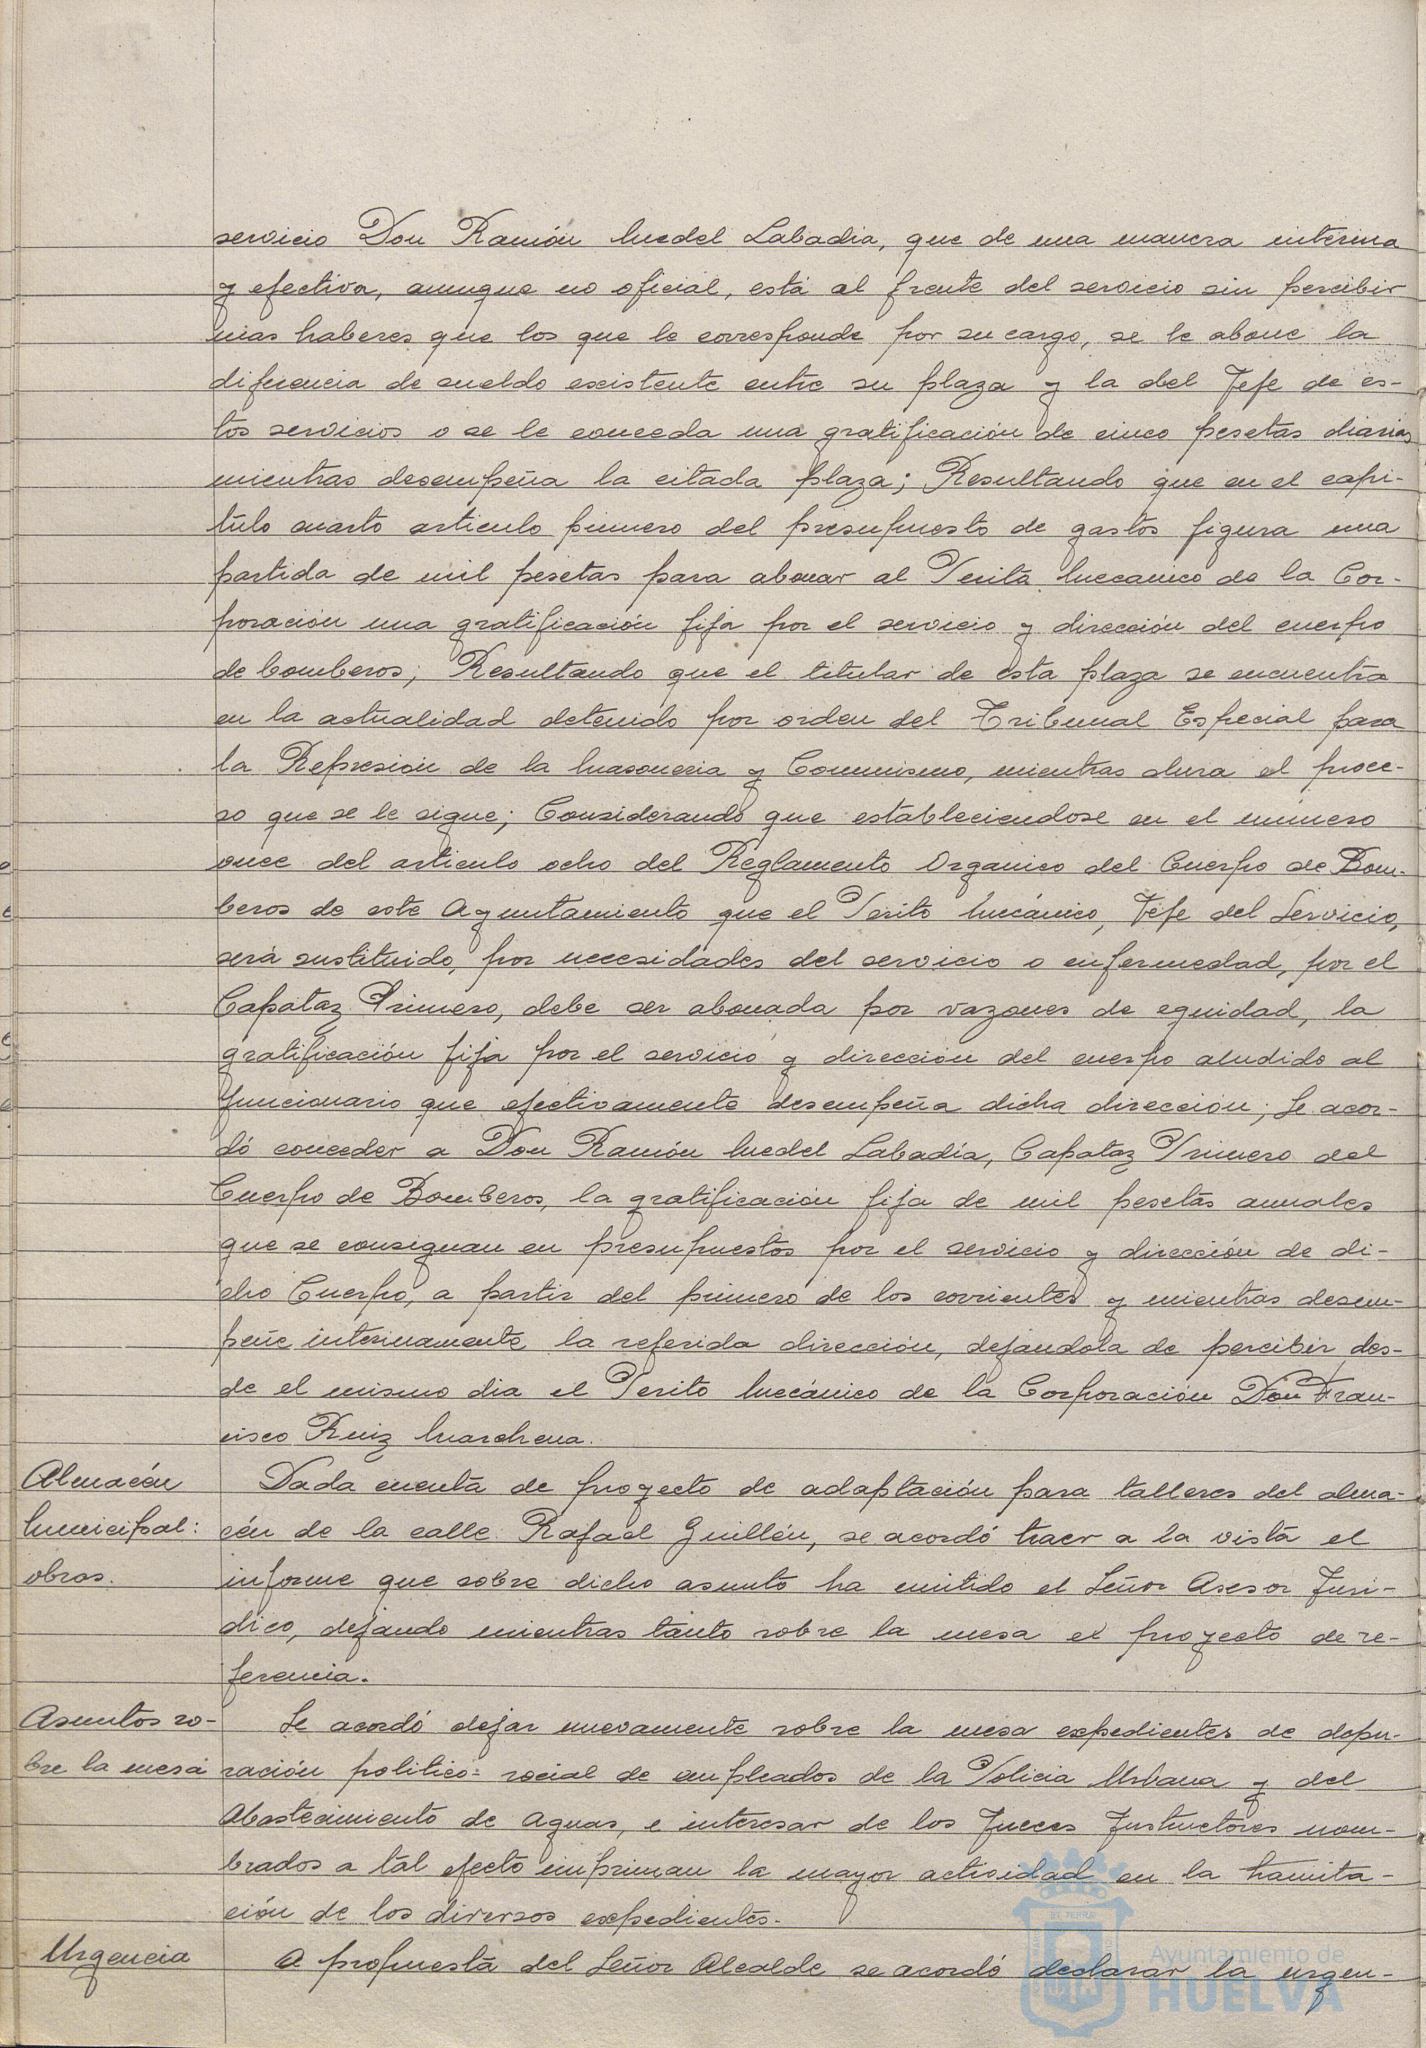 servicio Don Ramón Medel Labadia, que de una manera interina
y efectiva, aunque no oficial, está al frente del servicio sin percibir
mas haberes que los que le corresponde por su cargo, se le abone la
diferencia de sueldo existente entre su plaza y la del Jefe de es-
tos servicios o se le conceda una gratificación de cinco pesetas diarias
mientras desempeña la citada plaza; Resultando que en el capi-
tulo cuarto articulo primero del presupuesto de gastos figura una
partida de mil pesetas para abonar al Perito Mecanico de la Cor-
poración una gratificación fija por el servicio y dirección del cuerpo
de bomberos; Resultando que el titular de esta plaza se encuentra
en la actualidad detenido por orden del Tribunal Especial para
la Represión de la Masoneria y Comunismo, mientras dura el proce-
so que se le sigue; Considerando que estableciendose en el número
once del articulo ocho del Reglamento Organico del Cuerpo de Bom-
beros de este Ayuntamiento que el Perito Mecánico, Jefe del Servicio,
será sustituido, por necesidades del servicio o enfermedad, por el
Capataz Primero, debe ser abonada por razones de equidad, la
gratificación fija por el servicio y dirección del cuerpo aludido al
funcionario que efectivamente desempeña dicha dirección; Se acor-
dó conceder a Don Ramón Medel Labadía, Capataz Primero del
Cuerpo de Bomberos, la gratificación fija de mil pesetas anuales
que se consignan en presupuestos por el servicio y dirección de di-
cho Cuerpo, a partir del primero de los corrientes y mientras desem-
peñe interinamente la referida dirección, dejandola de percibir des-
de el mismo dia el Perito Mecánico de la Corporación Don Fran-
cisco Ruiz Marchena.
Almacén Dada cuenta de proyecto de adaptación para talleres del alma-
Municipal: cén de la calle Rafael Guillén, se acordó traer a la vista el
obras. informe que sobre dicho asunto ha emitido el Señor Asesor Juri-
dico, dejando mientras tanto sobre la mesa el proyecto de re-
ferencia.
Asuntos so- Se acordó dejar nuevamente sobre la mesa expedientes de depu-
bre la mesa ración politico=social de empleados de la Policia Urbana y del
Abastecimiento de Aguas, e interesar de los Jueces Instructores nom-
brados a tal efecto impriman la mayor actividad en la tramita-
ción de los diversos expedientes.
Urgencia A propuesta del Señor Alcalde se acordó declarar la urgen-
Ayuntamiento de
HUELVA